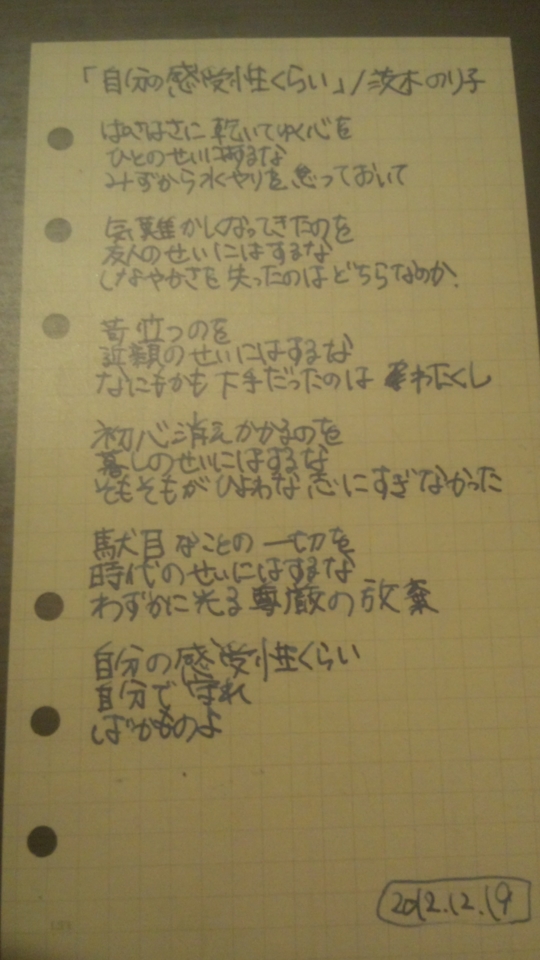 「自分の感受性くらい」/茨木のり子
ぱさぱさに乾いてゆく心を
ひとのせいにはするな
みずから水やりを怠っておいて
気難かしくなってきたのを
友人のせいにはするな
しなやかさを失ったのはどちらなのか.
苛立つのを
近親のせいにはするな
なにもかも下手だったのは わたくし
初心消えかかるのを
暮しのせいにはするな
そもそもが ひよわな志にすぎなかった
駄目なことの一切を
時代のせいにはするな
わずかに光る尊厳の放棄
自分の感受性くらい
自分で守れ
ばかものよ
2012.12.19